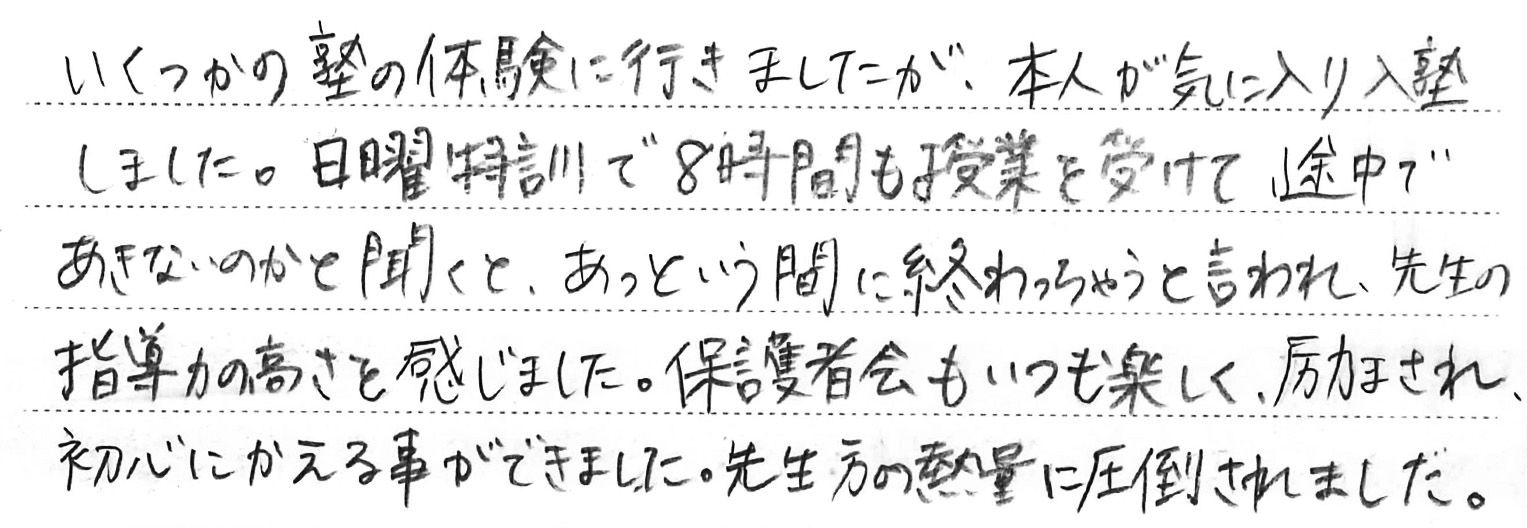 いくつかの塾の体験に行きましたが、本人が気に入り入塾
しました。日曜特訓で8時間も授業を受けて途中で
あきないのかと聞くと、あっという間に終わっちゃうと言われ、先生の
指導力の高さを感じました。保護者会もいつも楽しく、励まされ、
初心にかえる事ができました。先生方の熱量に圧倒されました。